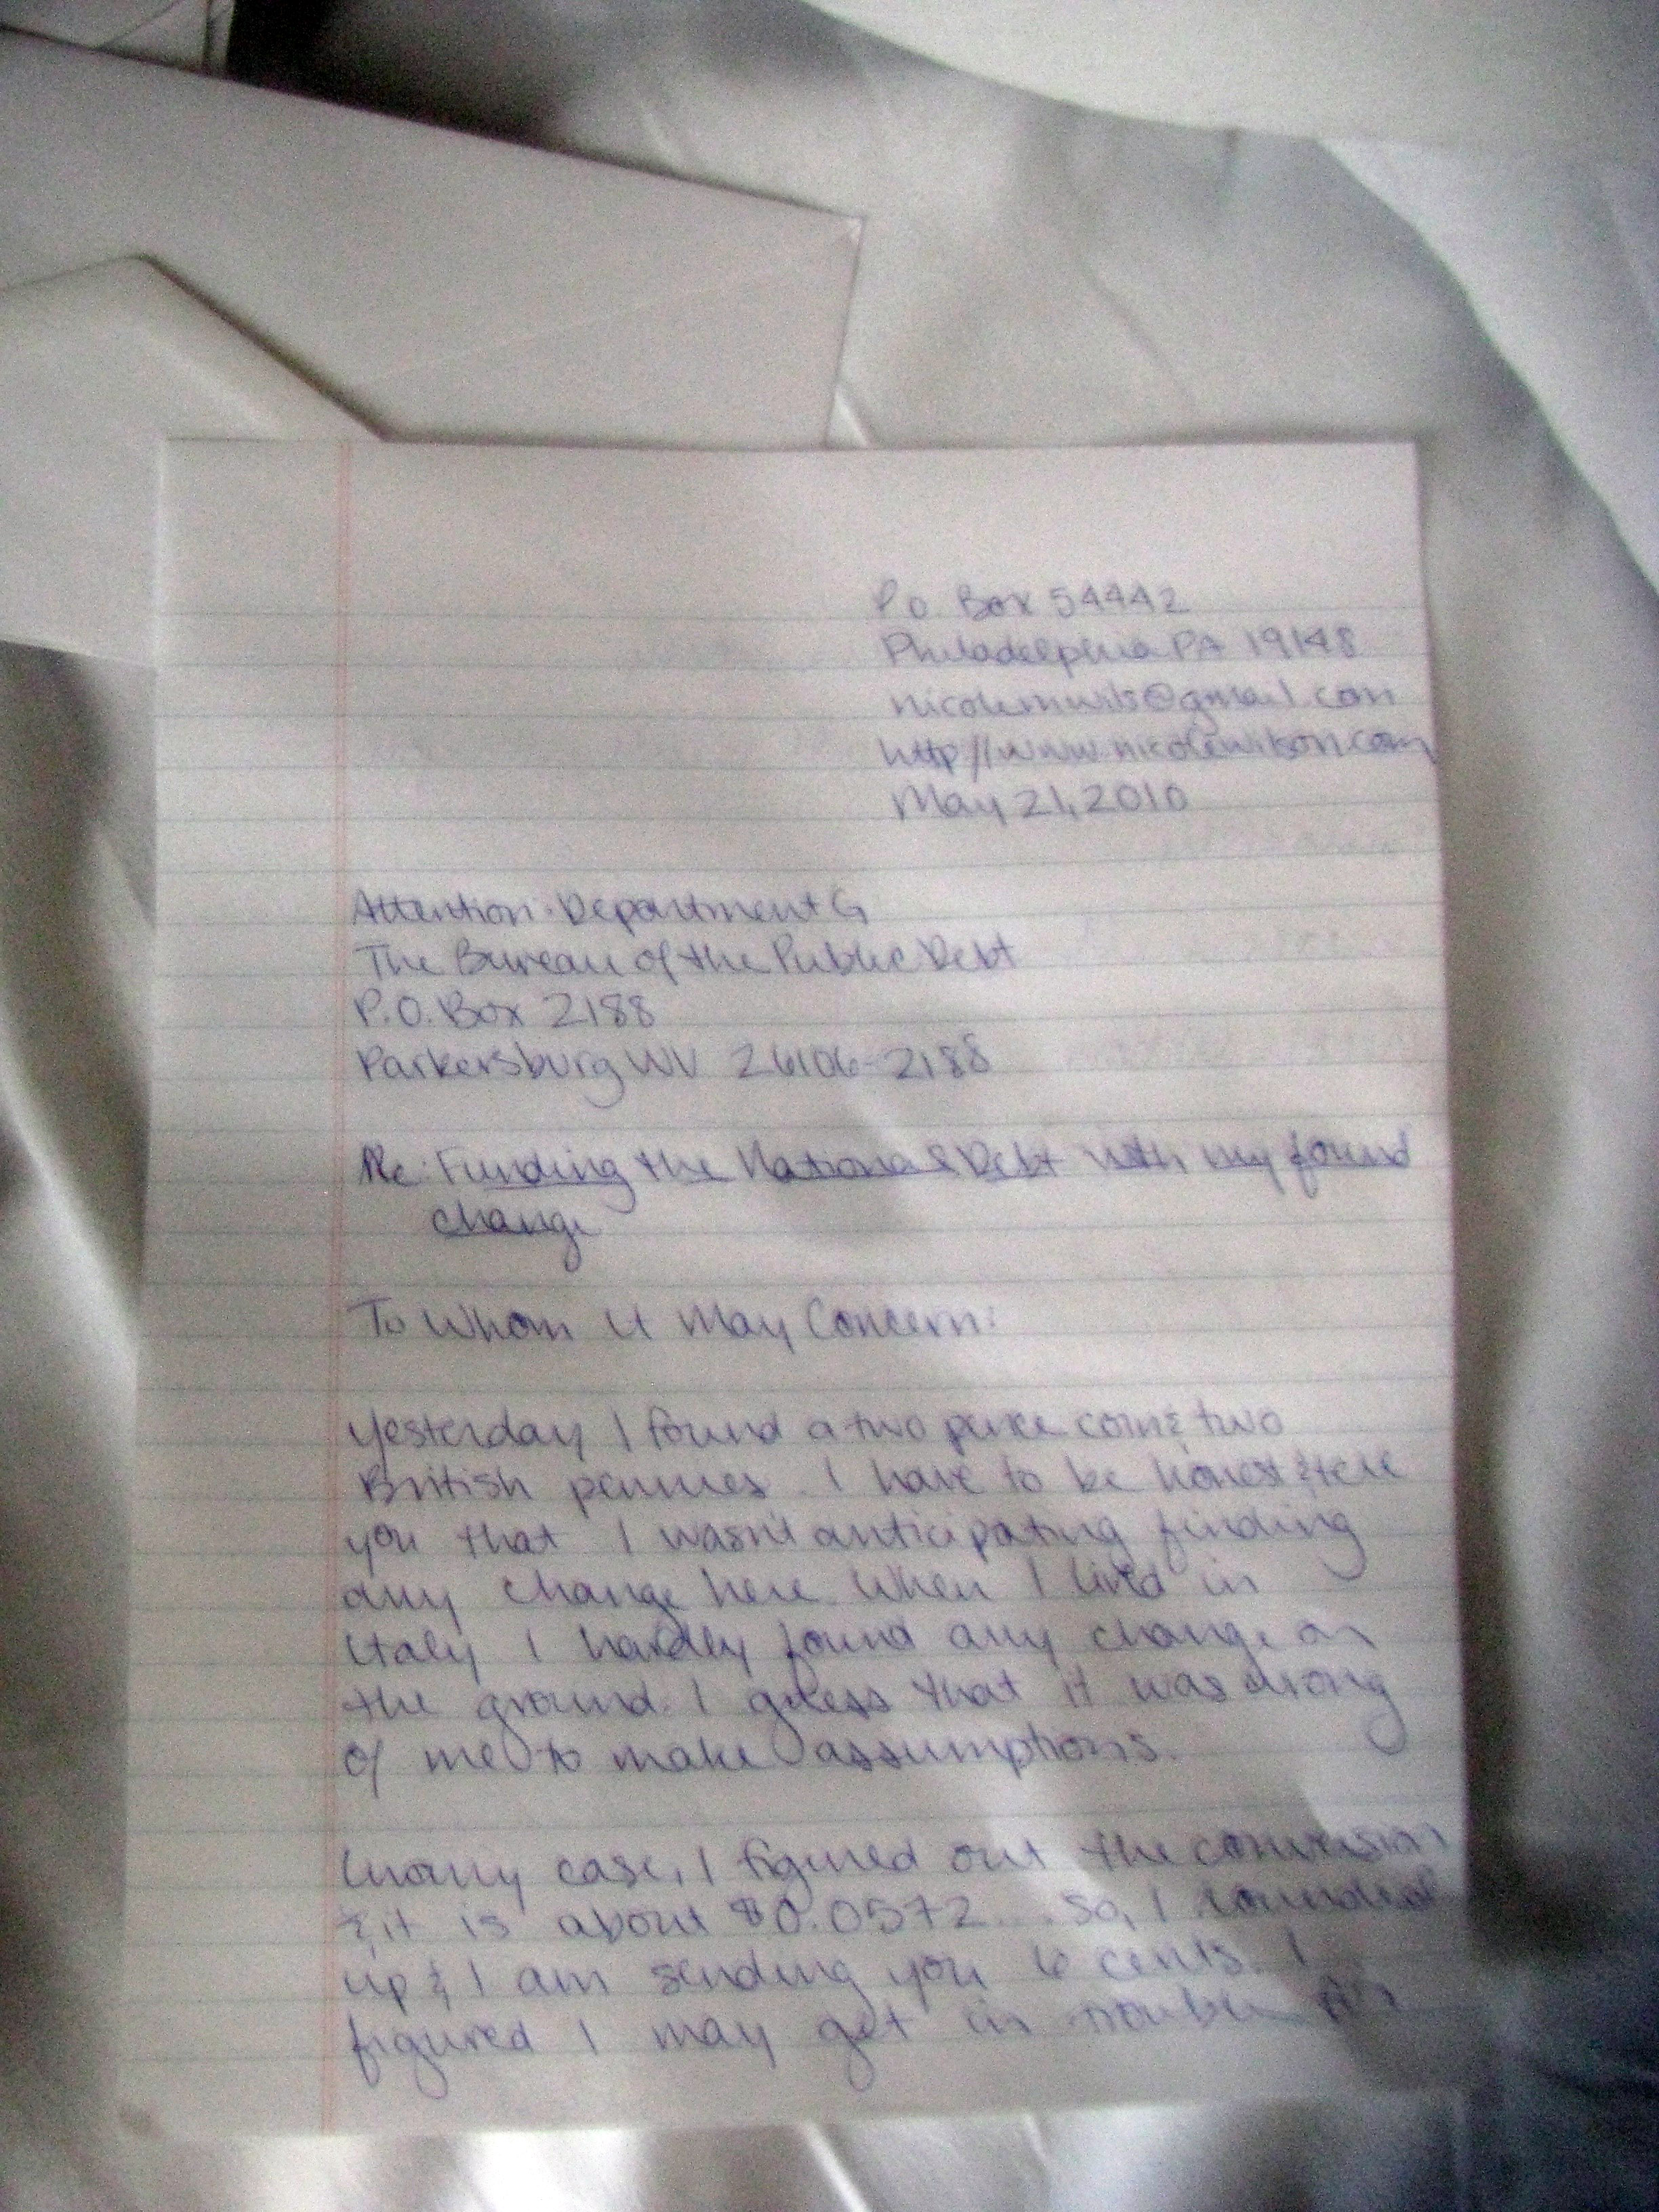 P.O. Box 54442
Philadelphia PA 19148
nicolemwils@gmail.com
http://www.nicolewilson.com
May 21, 2010
Attention: Department G
The Bureau of the Public Debt
P.O. Box 2188
Parkersburg WV 26106-2188
Re: Funding the National Debt with my found
change
To Whom It May Concern:
Yesterday I found a two pence coin & two
British pennies. I have to be honest & tell
you that I wasn't anticipating finding
any change here. When I lived in
Italy I hardly found any change on
the ground. I guess that it was wrong
of me to make assumptions.
In any case, I figured out the conversion
& it is about $0.0572... So, I rounded
up & I am sending you 6 cents. I
figured I may get in trouble for